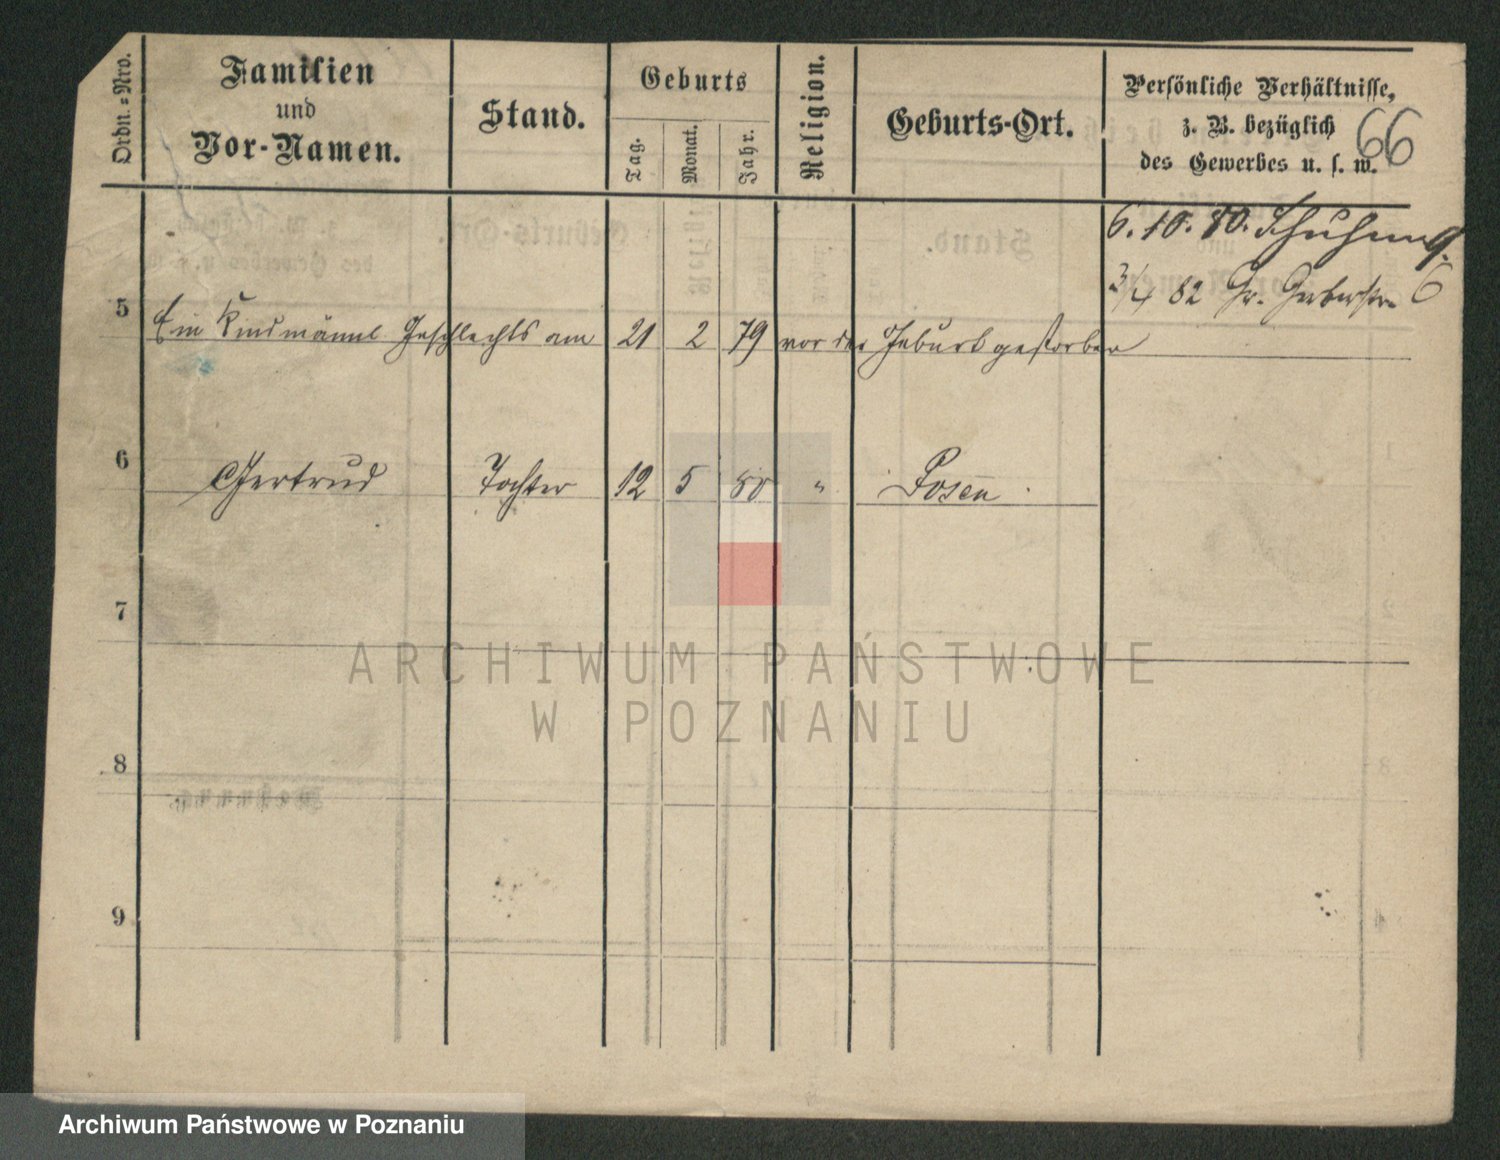 Ordn.-Nro.
Familien
und
Vor-Namen.
Stand.
Geburts
Tag.
Monat.
Jahr.
Religion.
Geburts-Ort.
Persönliche Verhältnisse,
z. B. bezüglich
des Gewerbes u. s. w.
66
6. 10. 80.
3/4 82 Gr. Gerberstr. 6
5 Ein Kind männl Geschlechts am 21 2 79 vor der Geburt gestorben
6 Gertrud Tochter 12 5 80 " Posen
7
8
9
ARCHIWUM PAŃSTWOWE
W POZNANIU
Archiwum Państwowe w Poznaniu